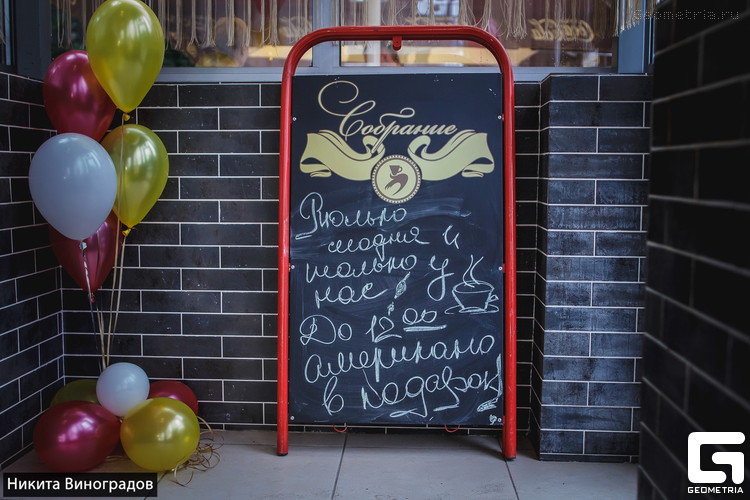 Geometria.ru
Собрание
Только
сегодня и
только у
нас!
До 12.00
американо
в подарок!
Никита Виноградов
G
GEOMETRIA